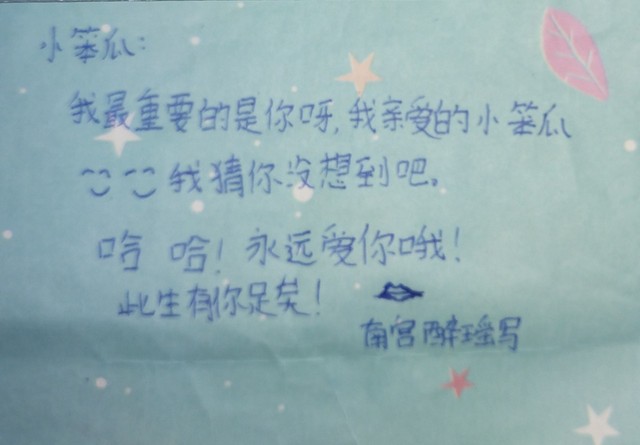 小笨瓜:
我最重要的是你呀,我亲爱的小笨瓜
我猜你没想到吧。
哈哈!永远爱你哦!
此生有你足矣!
南宫醉瑶写